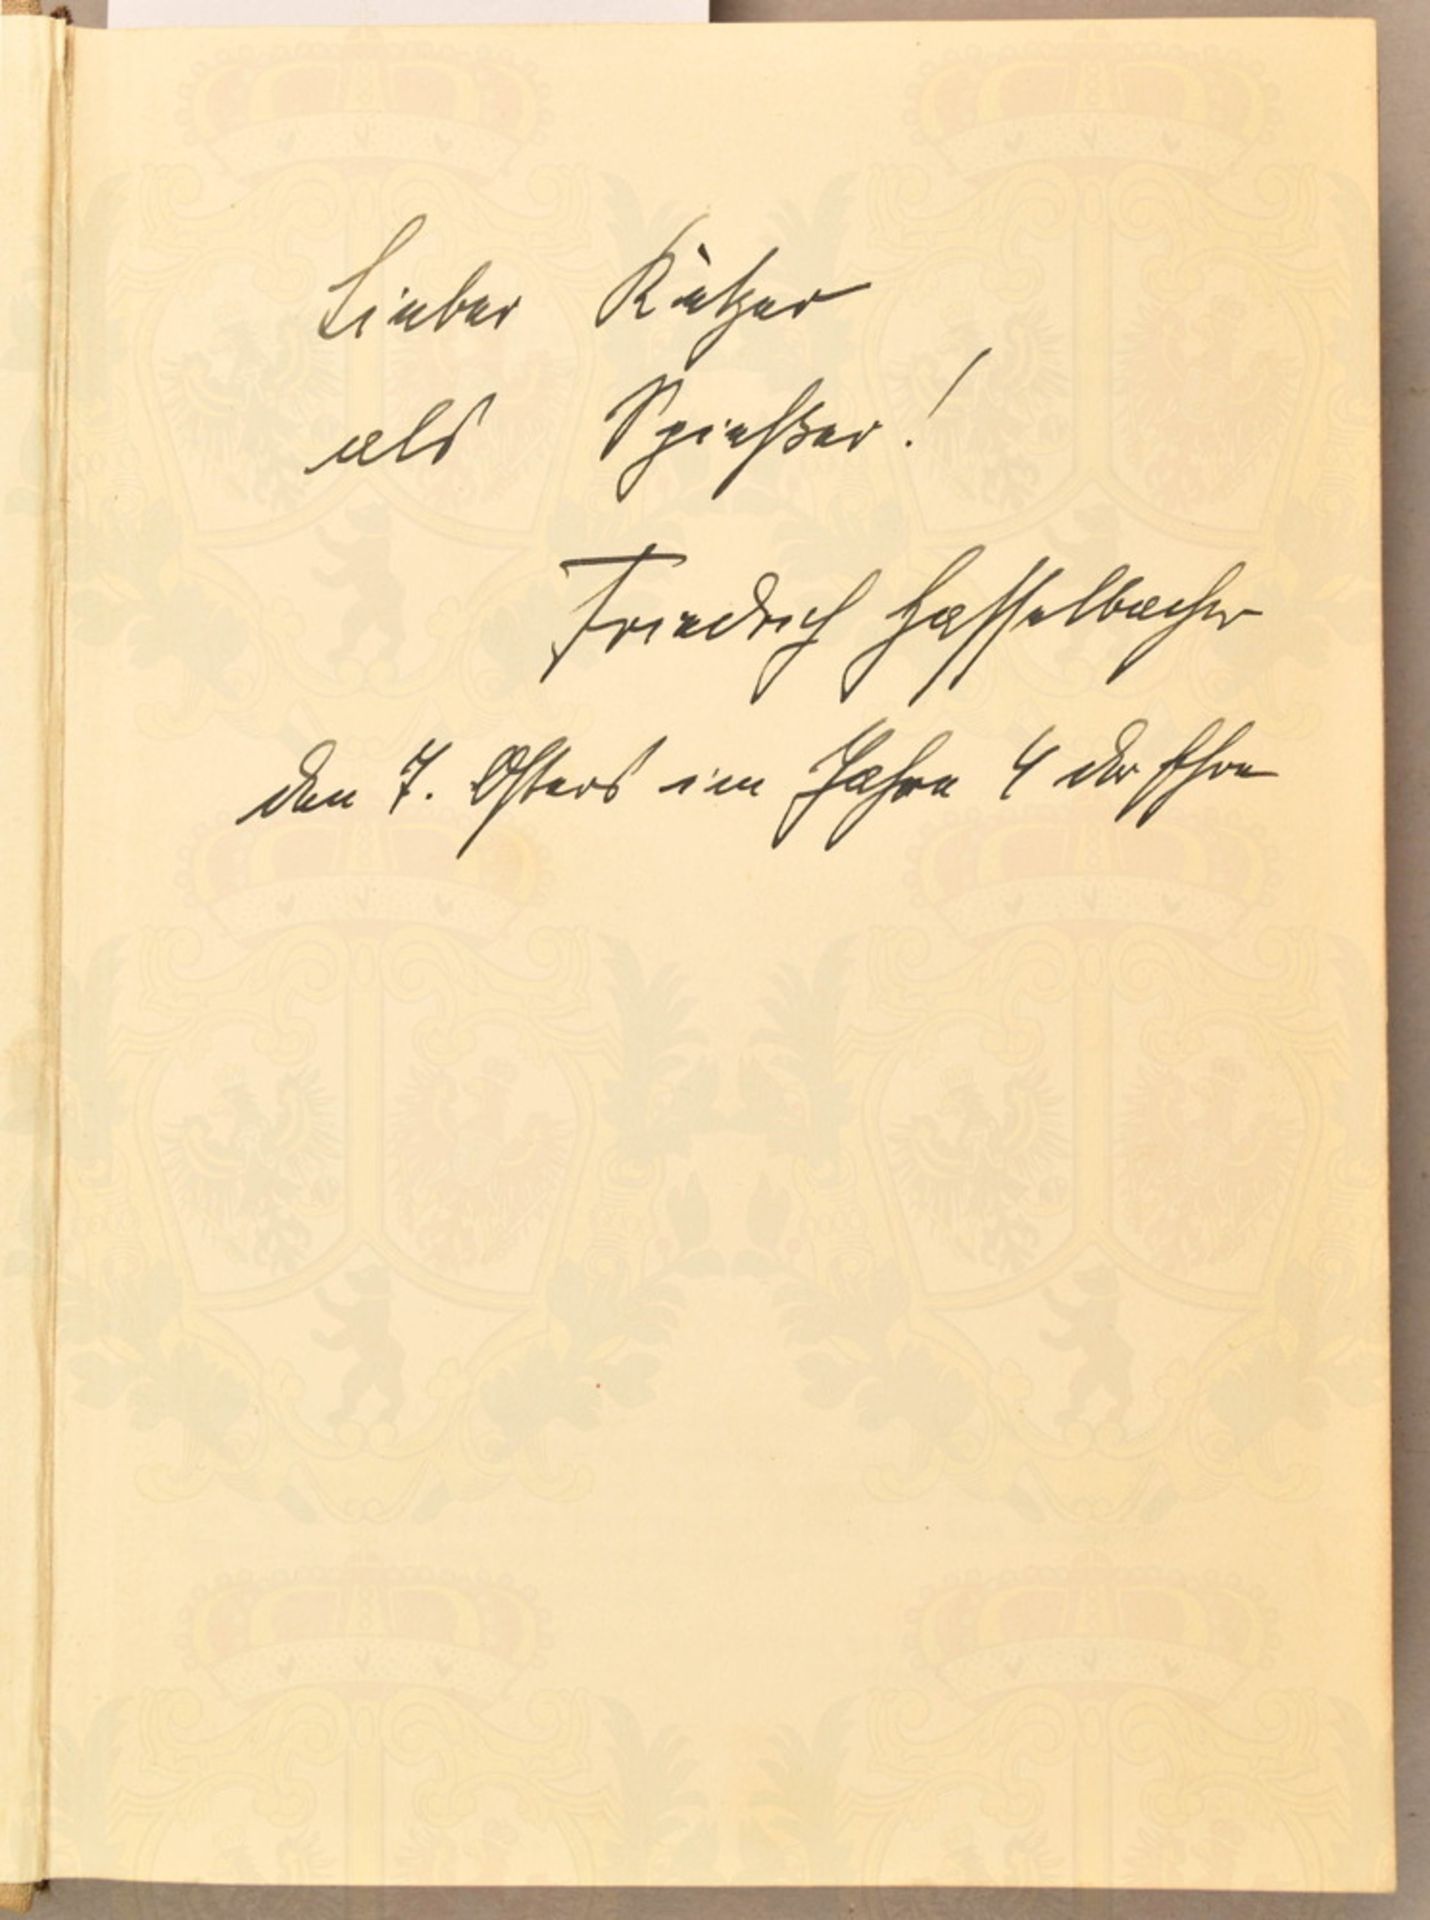 Lieber Ketzer
als Spießer!
Friedrich Hasselbacher
den 7. Osters im Jahre 4 der Ehre